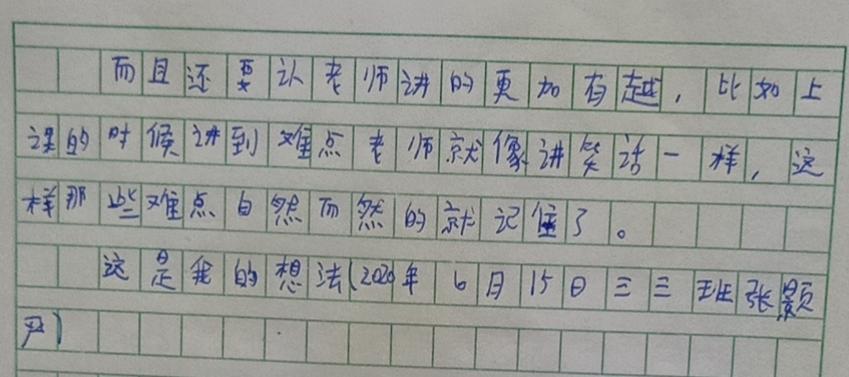 而且还要让老师讲的更加有越，比如上
课的时候讲到难点老师就像讲笑话一样，这
样那些难点自然而然的就记住了。
这是我的想法(2020年6月15日三三班张颢
尹)